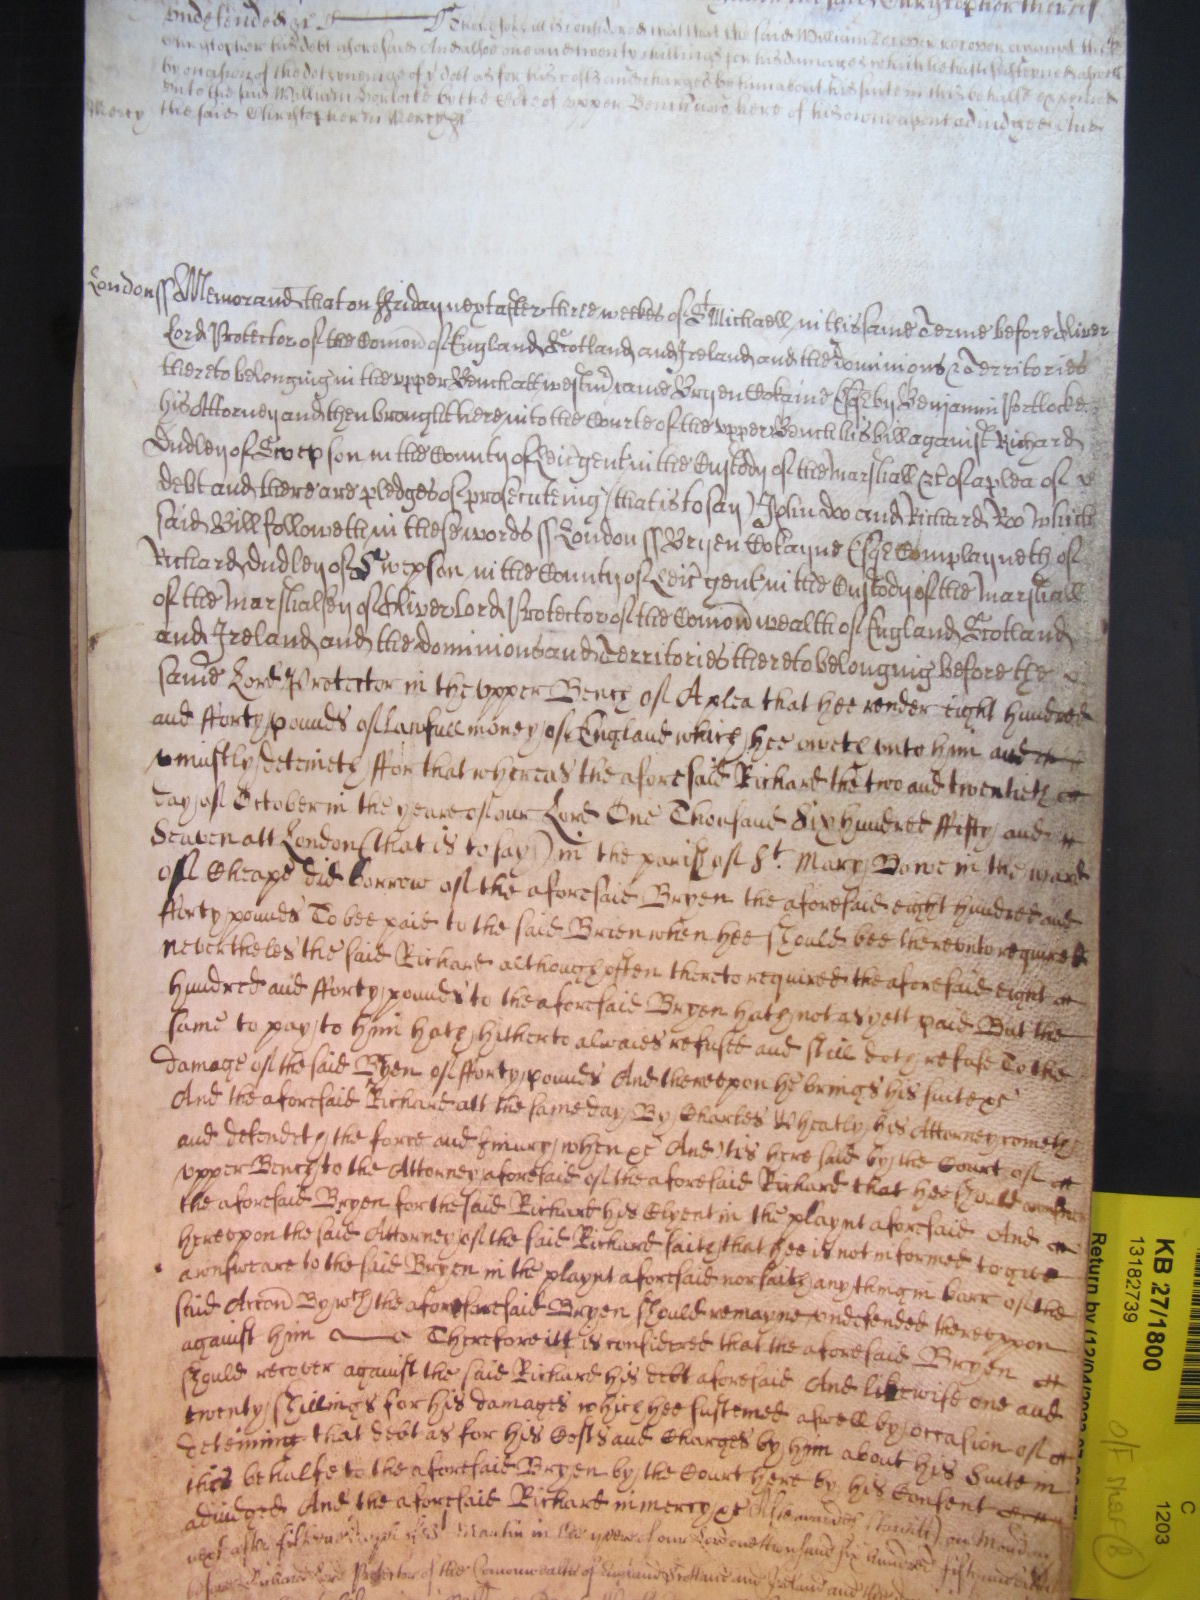 undefended &c Therefore it is considered that the said William recover against the
Christopher his debt aforesaid And alsoe one and twenty shillings for his damages which he hath susteyned aswell
by occasion of the deteyneinge of yt debt as for his costs and charges by him about his suite in this behalfe expended
unto the said William by the Court of upper Bench now here of his owne assent adiudged And
Mercy the said Christopher in Mercy &c
London ss Memorand that on ffriday next after three weekes of St Michaell in this same Terme before Oliver
Lord Protector of the Comon of England Scotland and Ireland and the dominions & Territories
thereto belonging in the upper Bench att westm came Bryen Cokaine Esqr by Benjamin Portlocke
his Attorney and then brought here into the Courte of the upper Bench his bill against Richard
Dudley of Swepson in the County of Leic gent in the Custody of the Marshall &c of a plea of
debt and there are pledges of prosecuteing (that is to say) John Doo and Richard Roo which
said Bill followeth in these words ss London ss Bryen Cokayne Esqr Complayneth of
Richard Dudley of Swepson in the County of Leic gent in the Custody of the Marshall
of the Marshalsey of Oliver Lord Protector of the Comon wealth of England Scotland
and Ireland and the dominions and Territories thereto belonging before the
same Lord Protector in the upper Bench of A plea that hee render eight hundred
and fforty pounds of lawfull money of England which hee oweth unto him and
uniustly deteineth ffor that whereas the aforesaid Richard the two and twentieth
day of October in the yeare of our Lord One Thousand Six hundred ffifty and
Seaven att London (that is to say) in the parish of St. Mary Bowe in the ward
of Cheape did borrow of the aforesaid Bryen the aforesaid eight hundred and
fforty pounds To bee paid to the said Brien when hee should bee thereunto required
nevertheles the said Richard although often thereto required the aforesaid eight
hundred and fforty pounds to the aforesaid Bryen hath not as yett paid But the
same to pay to him hath hitherto alwaies refused and still doth refuse To the
damage of the said Bryen of fforty pounds And thereupon he brings his suite &c
And the aforesaid Richard att the same day By Charles Wheatly his Attorney cometh
and defendeth the force and Iniury when &c And tis here said by the Court of
upper Bench to the Attorney aforesaid of the aforesaid Richard that hee should answeare
the aforesaid Bryen for the said Richard his Clyent in the playnt aforesaid And
hereupon the said Attorney of the said Richard saith that hee is not informed to give
answeare to the said Bryen in the playnt aforesaid nor saith any thing in barr of the
said Accon By wch the aforesaid Bryen should remayne undefended thereuppon
against him Therefore itt is considered that the aforesaid Bryen
should recover against the said Richard his debt aforesaid And likewise one and
twenty shillings for his damages which hee susteined aswell by occasion of
deteining that debt as for his Costs and Charges by him about his Suite in
this behalfe to the aforesaid Bryen by the Court here by his Consent
adiudged And the aforesaid Richard in mercy &c Afterwards (Scilicet) on Monday
next after St Martin in the yeere of our Lord one thousand six hundred fiftie and
before Richard Lord Protector of the Comonwealth of England Scotland and Ireland and the
KB 27/1800
13182739
Return by (12/04/
C
1203